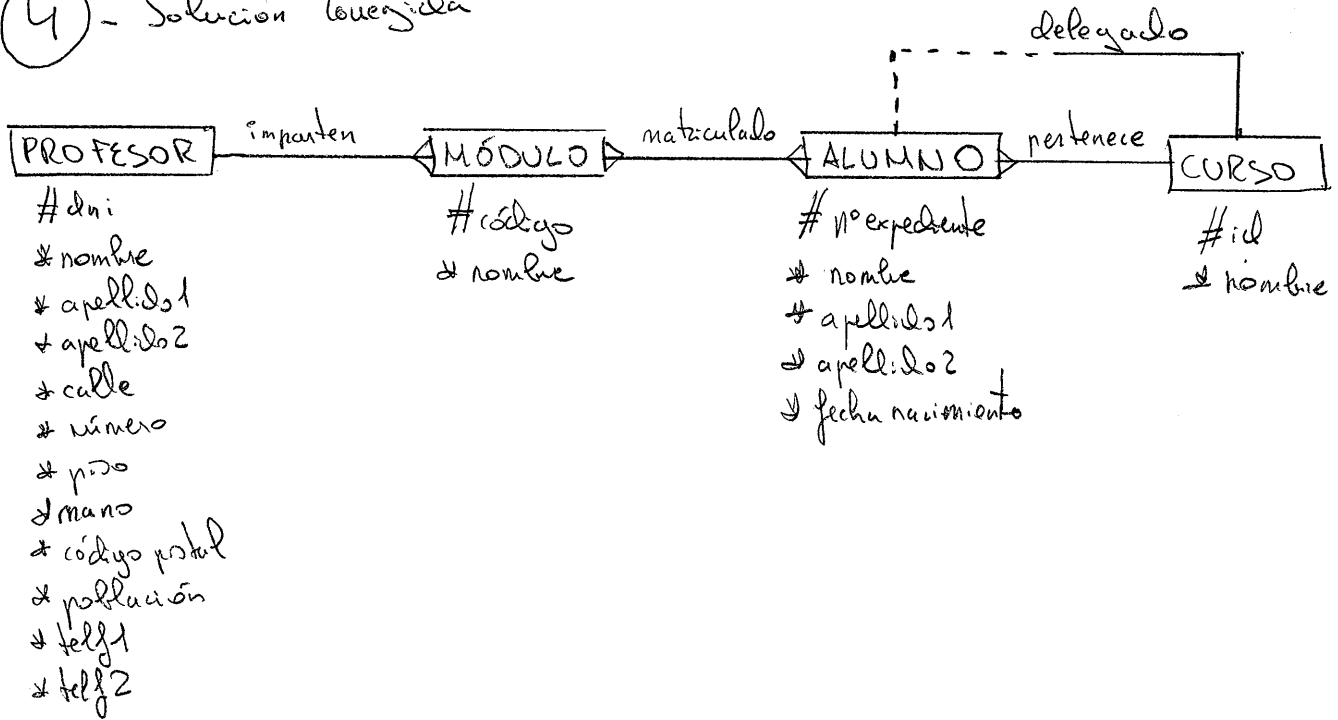 4 - Solución Corregida
delegado
imparten
matriculado
pertenece
PROFESOR
MÓDULO
ALUMNO
CURSO
# dni
* nombre
* apellido1
* apellido2
* calle
* número
* piso
* mano
* código postal
* población
* telf1
* telf2
# código
* nombre
# nº expediente
* nombre
* apellido1
* apellido2
* fecha nacimiento
# id
* nombre